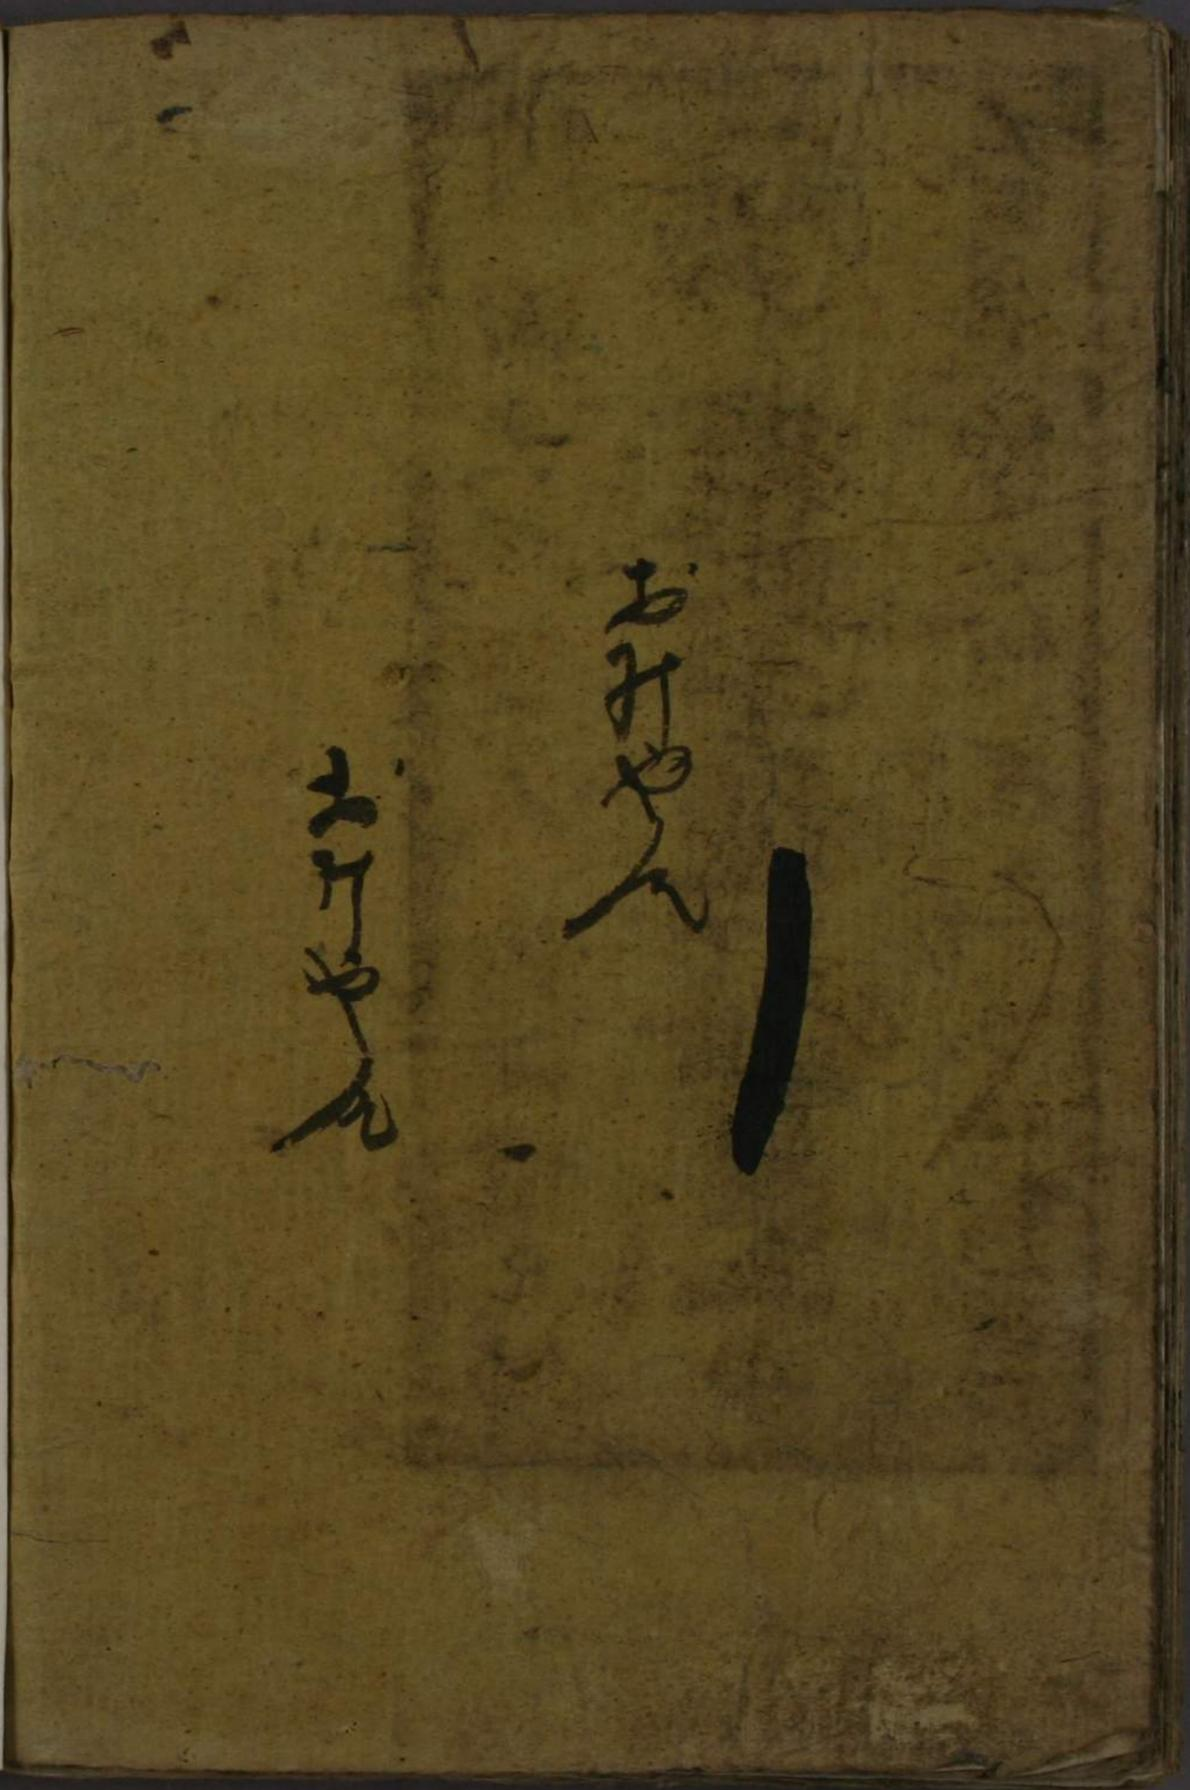 おみやん
おけやん